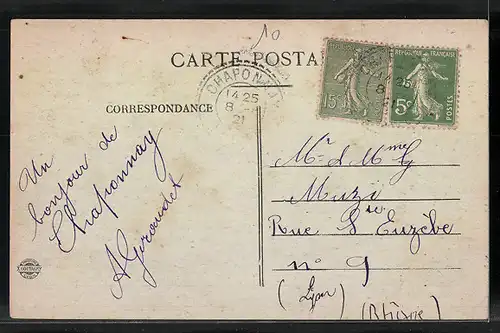 10
CARTE-POSTALE
CHAPONNAY
14 25
8
21
15c
RÉPUBLIQUE FRANÇAISE
5c
POSTES
CORRESPONDANCE
Un
bonjour de
Chaponnay
A Giroudet
Mr et Mme G
Muzi
Rue St Euzèbe
n° 9
(Lyon)
(Rhône)